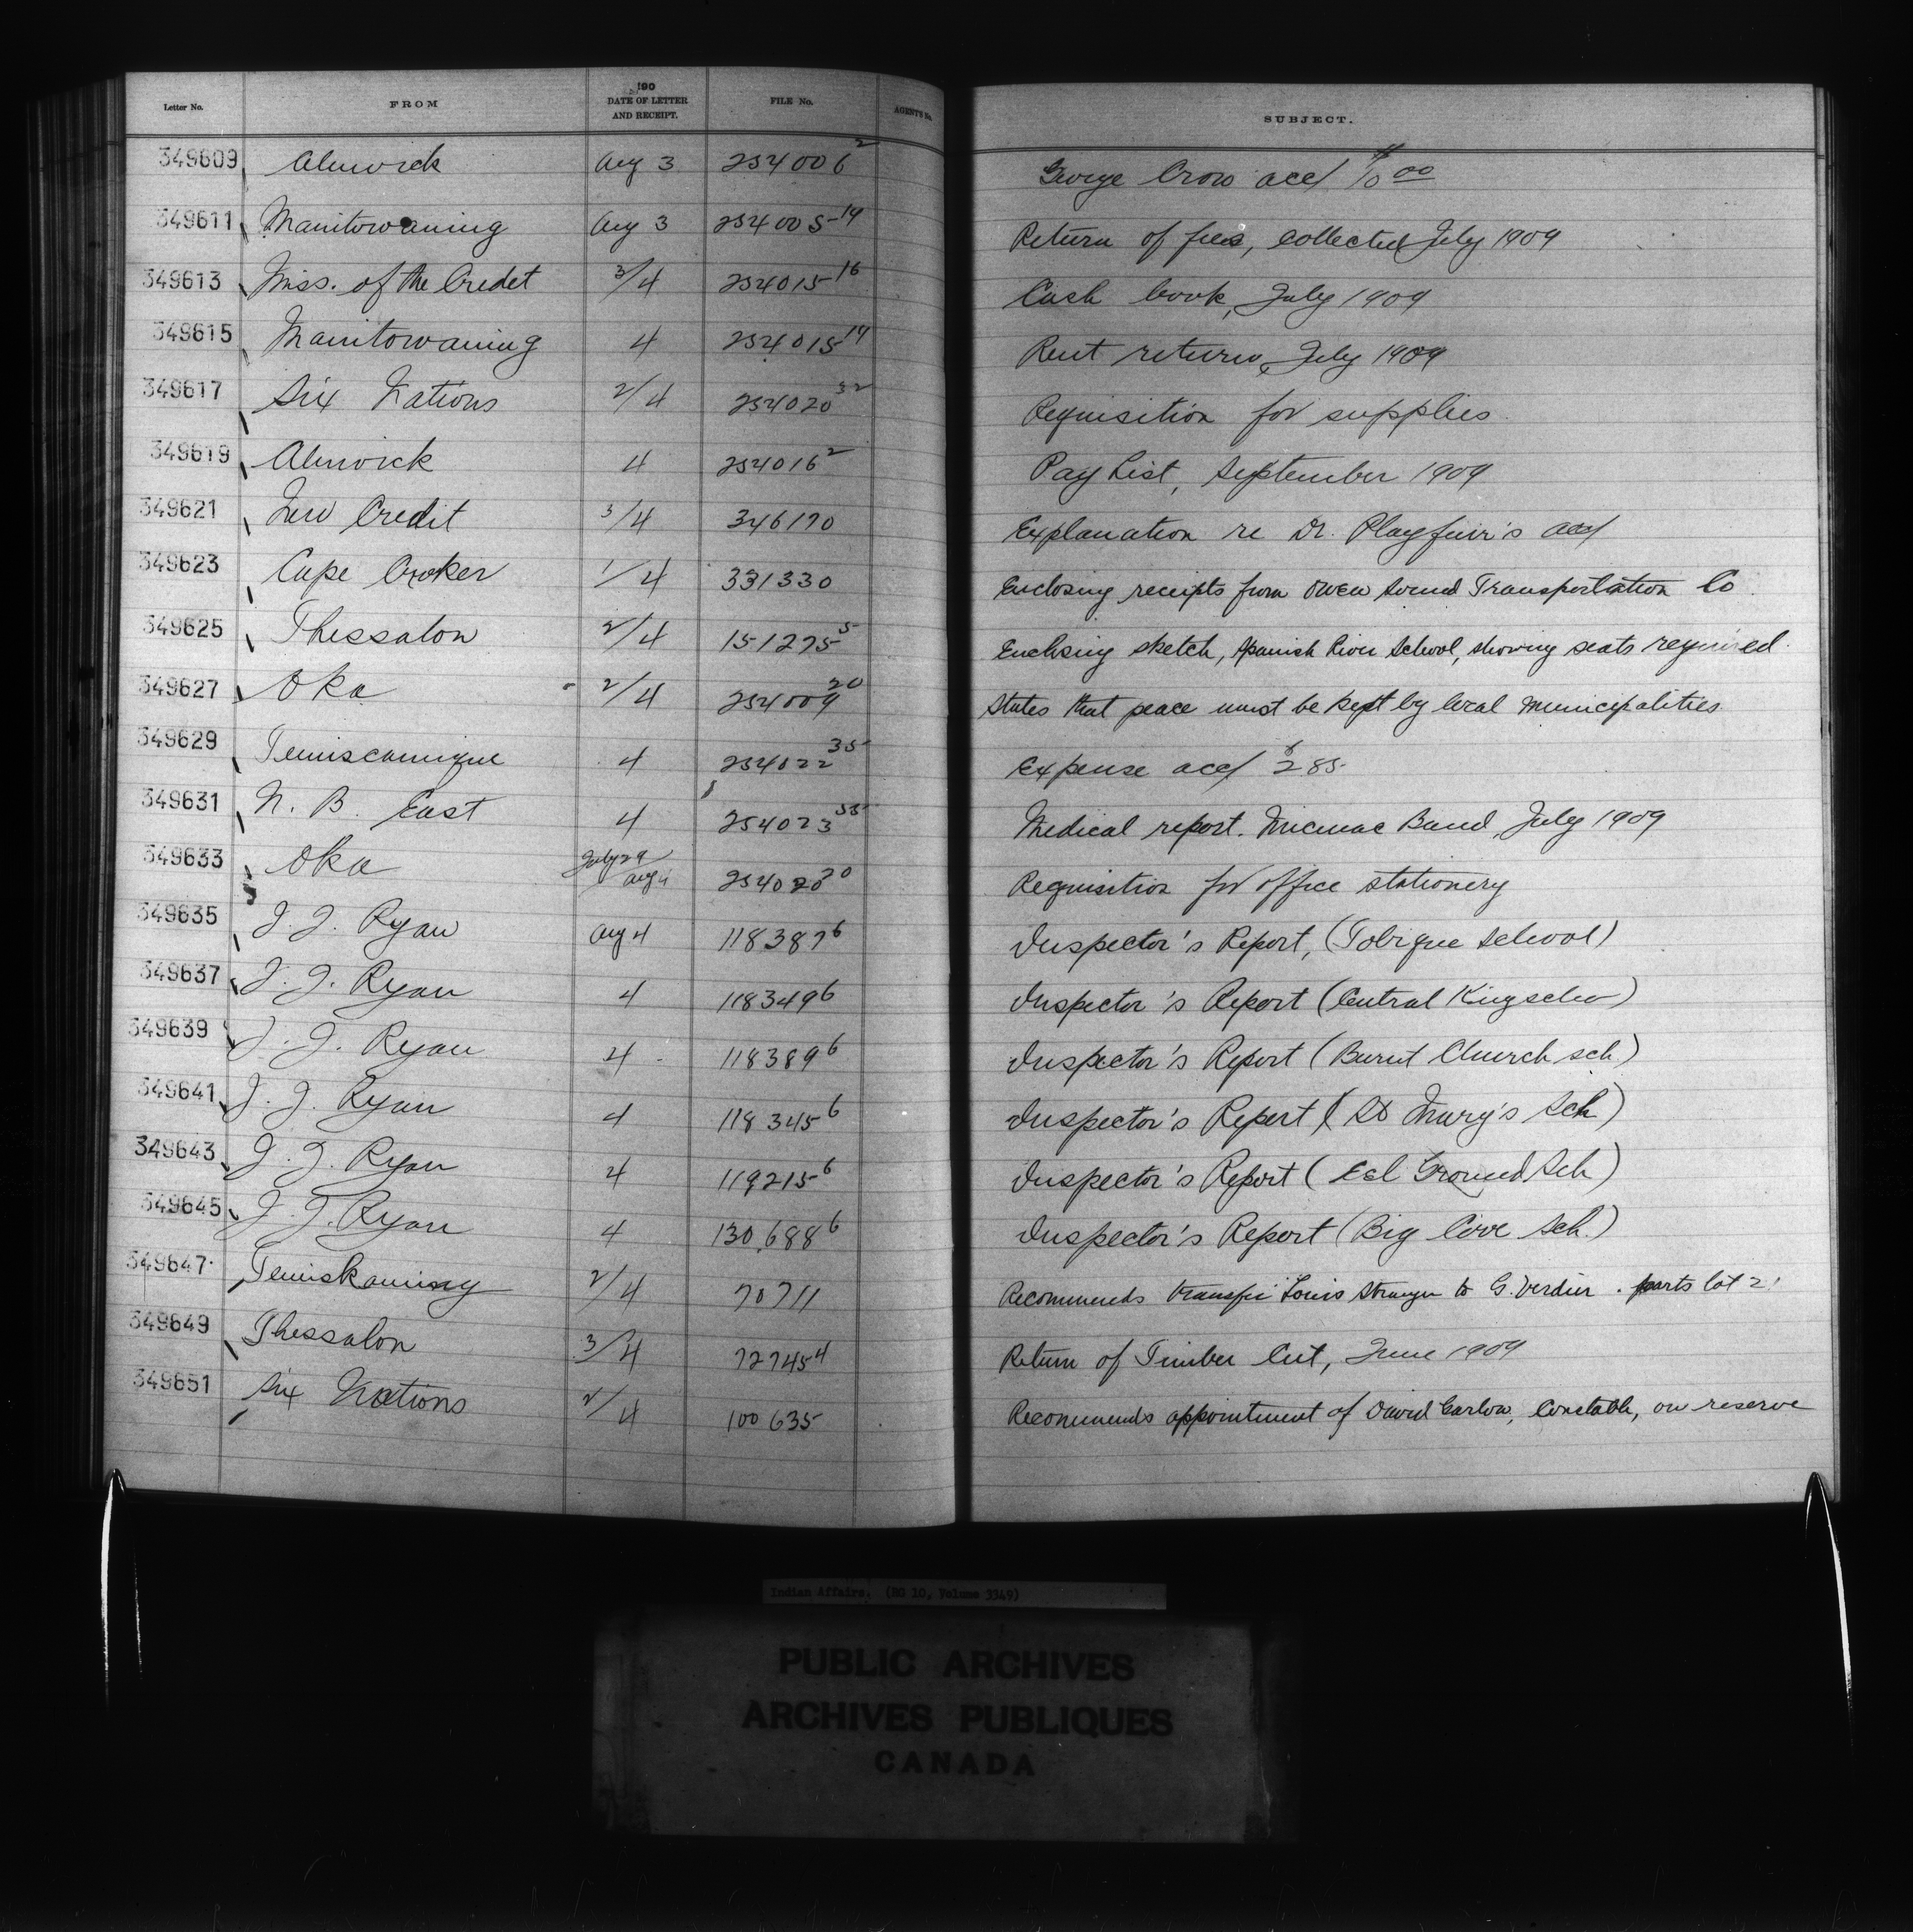 Letter No. FROM 190 DATE OF LETTER AND RECEIPT. FILE No. AGENT'S No. SUBJECT.
349609 Alnwick Aug 3 254006 2 George Crow acc/ $10 00
349611 Manitowaning Aug 3 254005-14 Return of fees, collected July 1909
349613 Miss. of the Credet 3/4 254015 16 Cash book, July 1909
349615 Manitowaning 4 254015 14 Rent return, July 1909
349617 Six Nations 2/4 254020 32 Requisition for supplies.
349619 Alnwick 4 254016 2 Pay List, September 1909
349621 New Credit 3/4 346170 Explanation re Dr. Playfair's acc/
349623 Cape Croker 1/4 331330 Enclosing receipts from Owen Sound Transportation Co.
349625 Thessalon 2/4 151275 5 Enclosing sketch, Spanish River School, showing seats required.
349627 Oka 2/4 254009 20 States that peace must be kept by local municipalities.
349629 Temiscamique 4 254022 35 Expense acc/ $2 85
349631 N. B. East 4 254023 35 Medical report. Micmac Band, July 1909
349633 Oka July 29/Aug 4 254020 20 Requisition for office stationery
349635 J. J. Ryan Aug 4 118387 6 Inspector's Report, (Tobique School)
349637 J. J. Ryan 4 118349 6 Inspector's Report (Central Kingsclea)
349639 J. J. Ryan 4 118389 6 Inspector's Report (Burnt Church sch)
349641 J. J. Ryan 4 118345 6 Inspector's Report (St Mary's Sch)
349643 J. J. Ryan 4 119215 6 Inspector's Report (Eel Ground Sch)
349645 J. J. Ryan 4 130,688 6 Inspector's Report (Big Cove Sch.)
349647 Temiskaming 2/4 70711 Recommends transfer Louis Stranger to G. Verdier. parts lot 2
349649 Thessalon 3/4 72745 4 Return of Timber Cut, June 1909
349651 Six Nations 2/4 100635 Recommends appointment of David Garlow, Constable, on reserve
Indian Affairs. (RG 10, Volume 3349)
PUBLIC ARCHIVES
ARCHIVES PUBLIQUES
CANADA